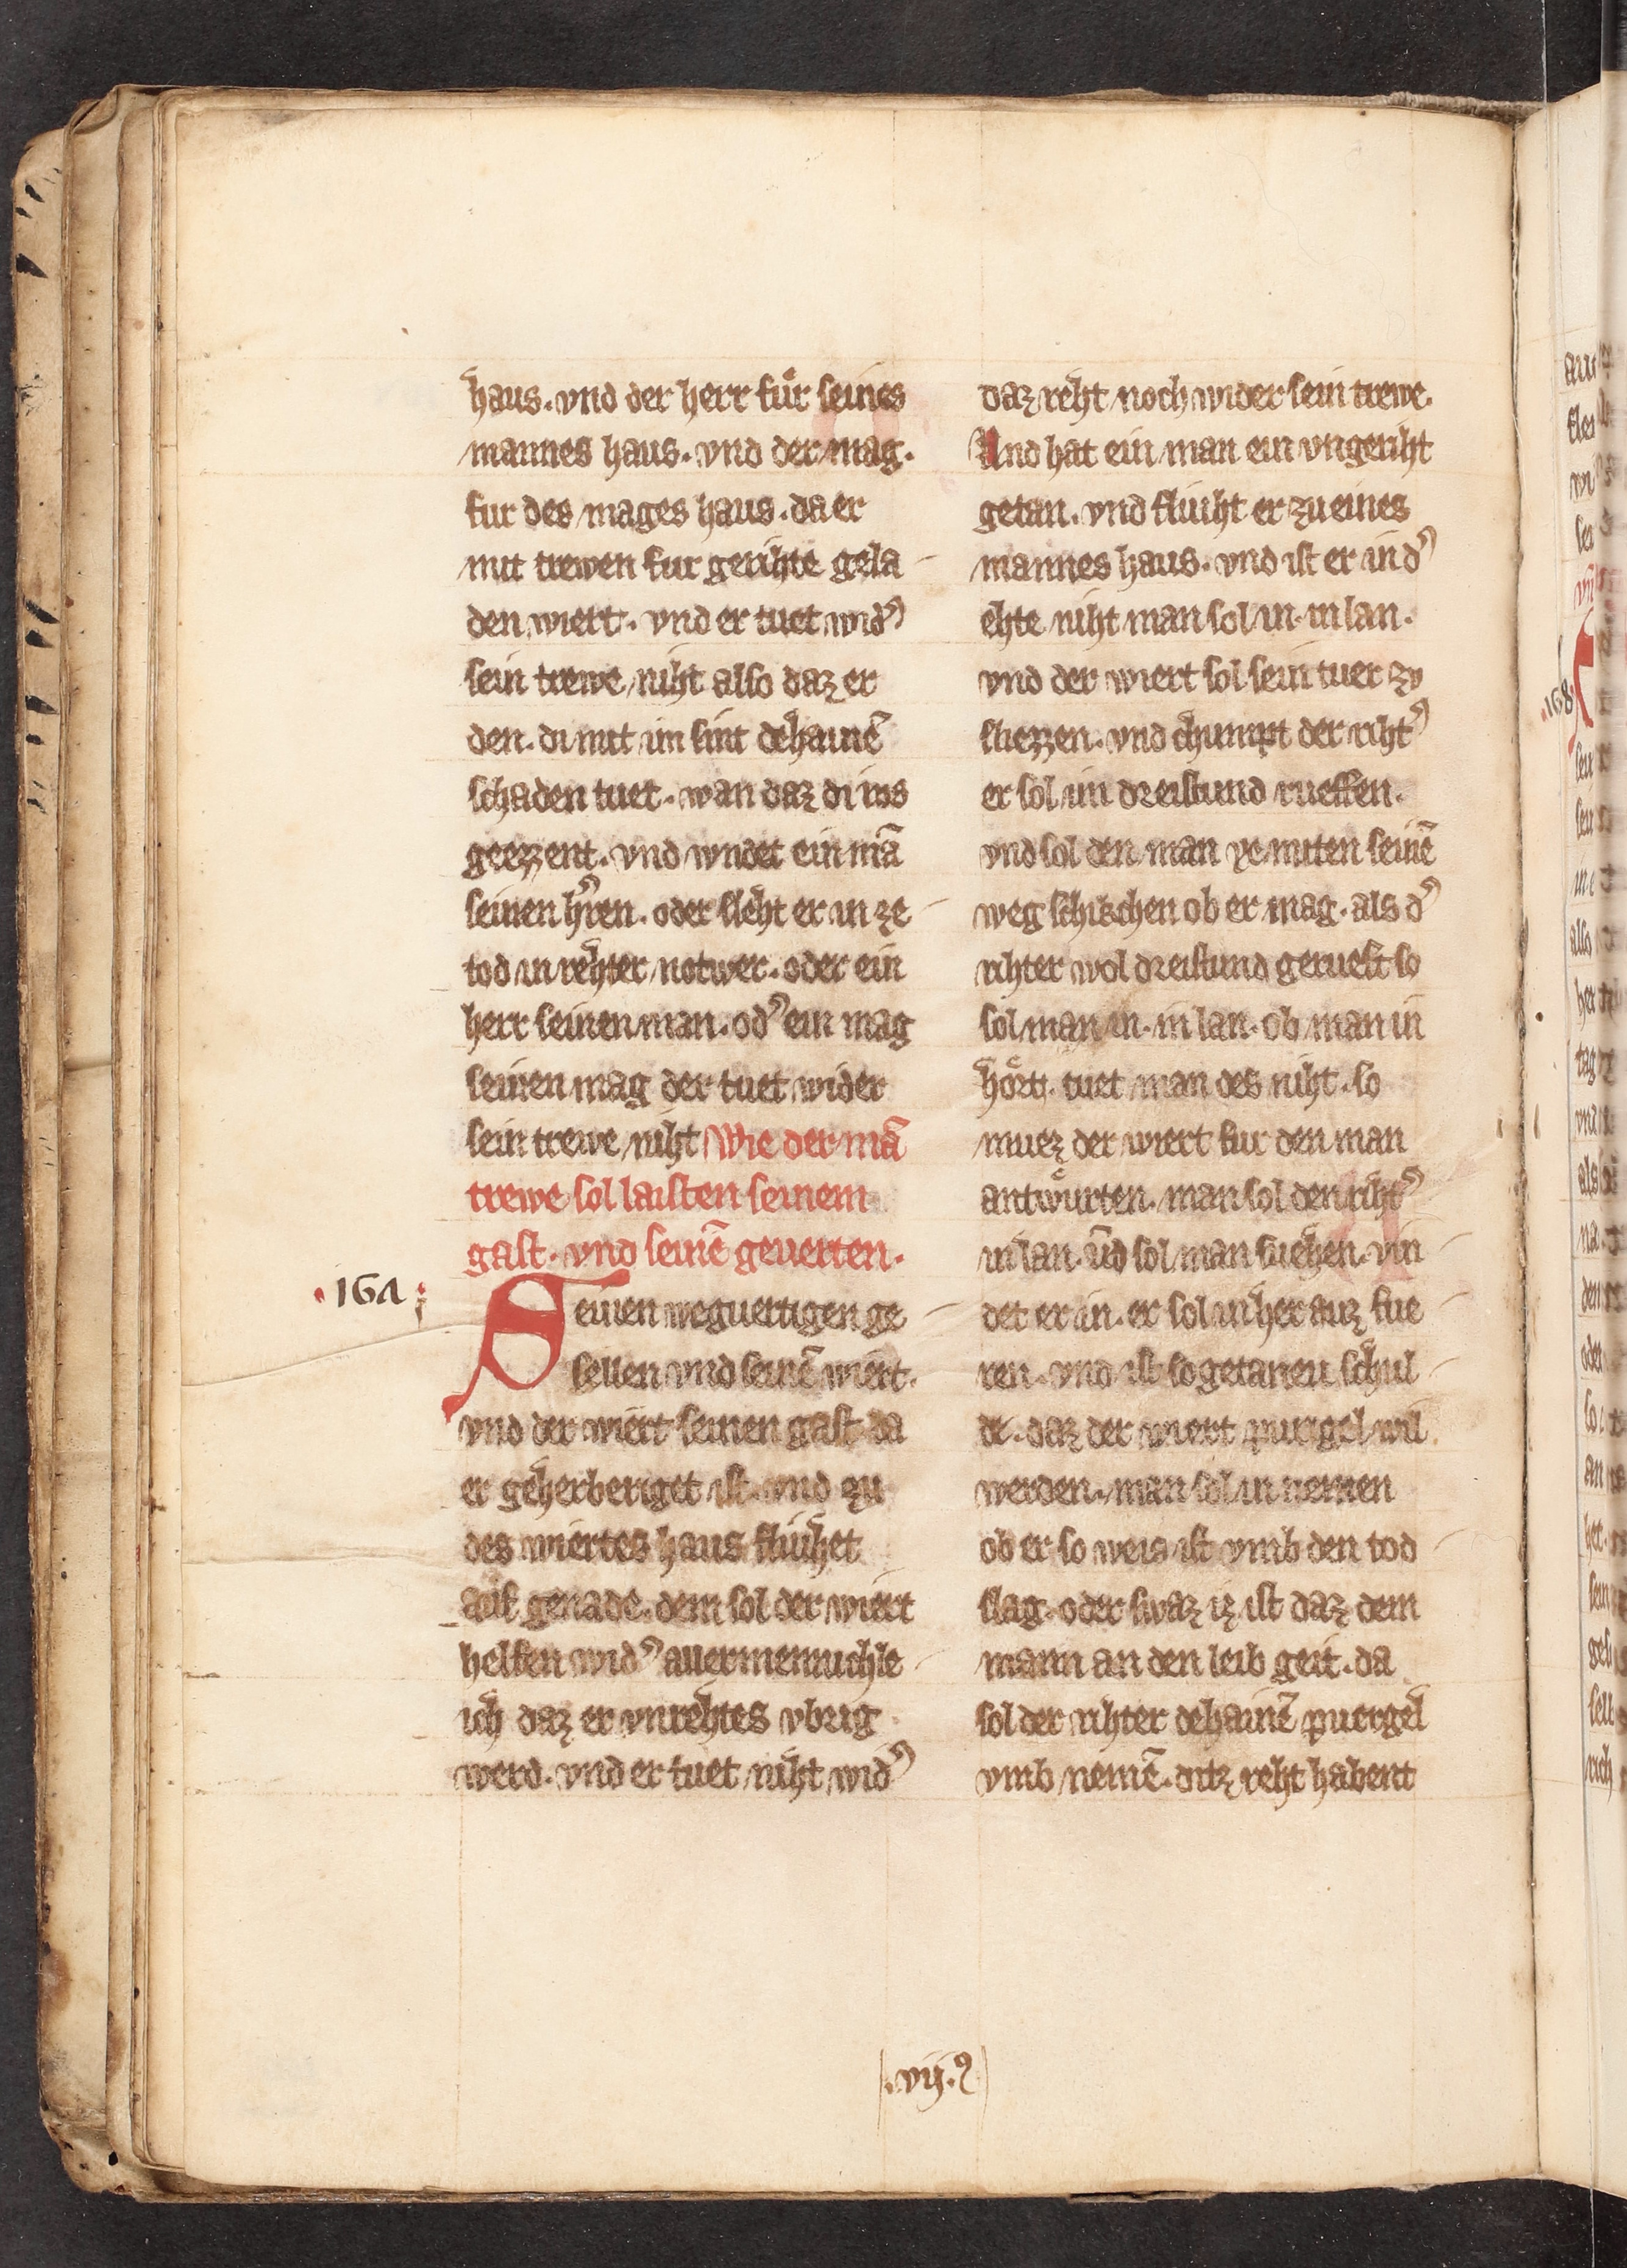 haus. vnd der herr fuͤr seines
mannes haus. vnd der mag.
fur des mages haus. da er
mit trewen fur gerihte gela-
den wiert. vnd er tuet wid'
sein trewe niht also daz er
den. di mit im sint dehainē
schaden tuet. wan daz di ros
geezzent. vnd wndet ein mā
seinen h'ren. oder sleht er in ze-
tod in rehter notwer. oder ein
herr seinen man. od' ein mag
seinen mag der tuet wider
sein trewe niht Wie der mā
trewe sol laisten seinem
gast. vnd seinē geuerten.
.167.
Seinen weguertigen ge-
sellen vnd seinē wiert.
vnd der wiert seinen gast da
er geherberiget ist. vnd zu
des wiertes haus fluihet
auf genade. dem sol der wiert
helfen wid' allermennichle-
ich daz er vnrehtes vbrig
werd. vnd er tuet niht wid'
daz reht noch wider sein trewe.
Und hat ein man ein vngeriht
getan. vnd fluiht er zu eines
mannes haus. vnd ist er in d'
ehte niht man sol in. in lan.
vnd der wiert sol sein tuer zv
sliezzen. vnd chumpt der riht'
er sol im dreistund rueffen.
vnd sol den man ye miten seinē
weg schikchen ob er mag. als d'
rihter wol dreistund geruest so
sol man in. in lan. ob man in
hoͤrt. tuet man des niht. so
muez der wiert fur den man
antwuͤrten. man sol den riht'
in lan. vn̄d sol man suehen. vin-
det er in. er sol in her auz fue-
ren. vnd ist sogetaneu schul-
de. daz der wiert purigel wil
werden. man sol in nemen
ob er so weis ist vmb den tod-
slag. oder swaz iz ist daz dem
mann an den leib geit. da
sol der rihter dehainē puergel
vmb nemē. ditz reht habent
.vij.9
.168.